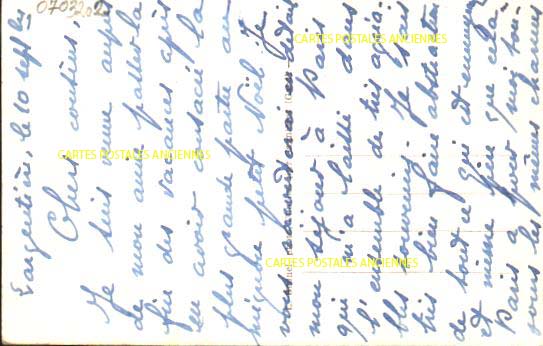 07032021
Largentière, le 10 sept
Chers cousins,
Je suis venue auprès
de mon amie passer la
fin des vacances après
en avoir consacré la
plus grande partie au
mignon petit Noël. Je
vous
mon séjour à Paris
qui m'a laissé dans
l'ensemble de très agréa-
bles souvenirs. Je sais
très bien faire abstraction
de tout ce qui est ennuyeux
et même pire que cela
Paris a pour moi tou-
jours les mêmes charmes
CARTES POSTALES ANCIENNES
CARTES POSTALES ANCIENNES
CARTES POSTALES ANCIENNES